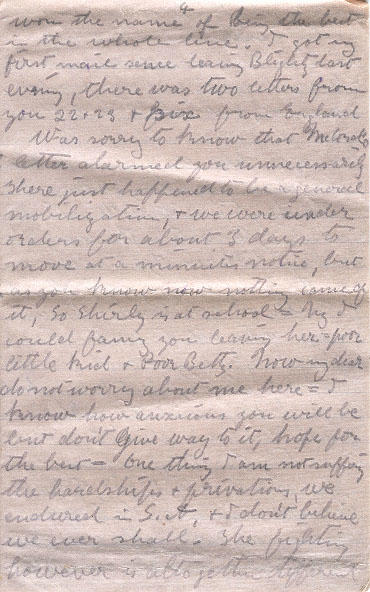 4
won the name of being the best
in the whole line. I got my
first mail sence leaving Blighty last
evening, there was two letters from
you 22 + 23 + six from England
Was sorry to know that
letter alarmed you unnecessarily
There just happened to be a general
mobilization, + we were under
orders for about 3 days to
move at a minutes notice, but
as you know now nothing came of
it, So Shirly is at school = My I
could fancy you leaving her = poor
little Kid + Poor Betty. Now my dear
do not worry about me here = I
know how anxious you will be
but don't Give way to it, hope for
the best = One thing I am not suffering
the hardships + privations, we
endured in S.A, + I don't believe
we ever shall. The fighting
however is altogether different